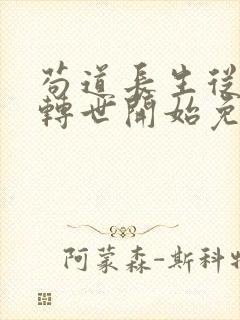 苟道長生從
轉世開始免
阿蒙森-斯科特